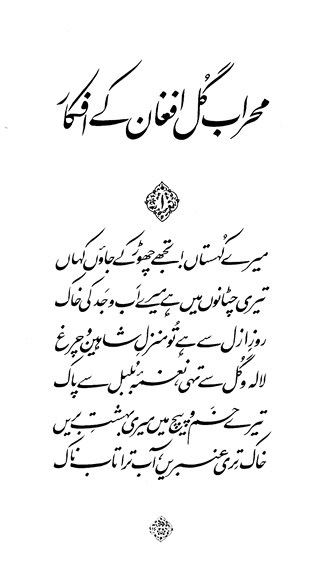 محراب گُل افغان کے افکار
۱
میرے کُہستاں! تجھے چھوڑ کے جاؤں کہاں
تیری چٹانوں میں ہے میرے اَب و جَد کی خاک
روزِ ازل سے ہے تُو منزلِ شاہین و چرغ
لالہ و گُل سے تہی، نغمۂ بُلبل سے پاک
تیرے خَم و پیچ میں میری بہشتِ بریں
خاک تِری عنبریں، آب ترا تاب ناک